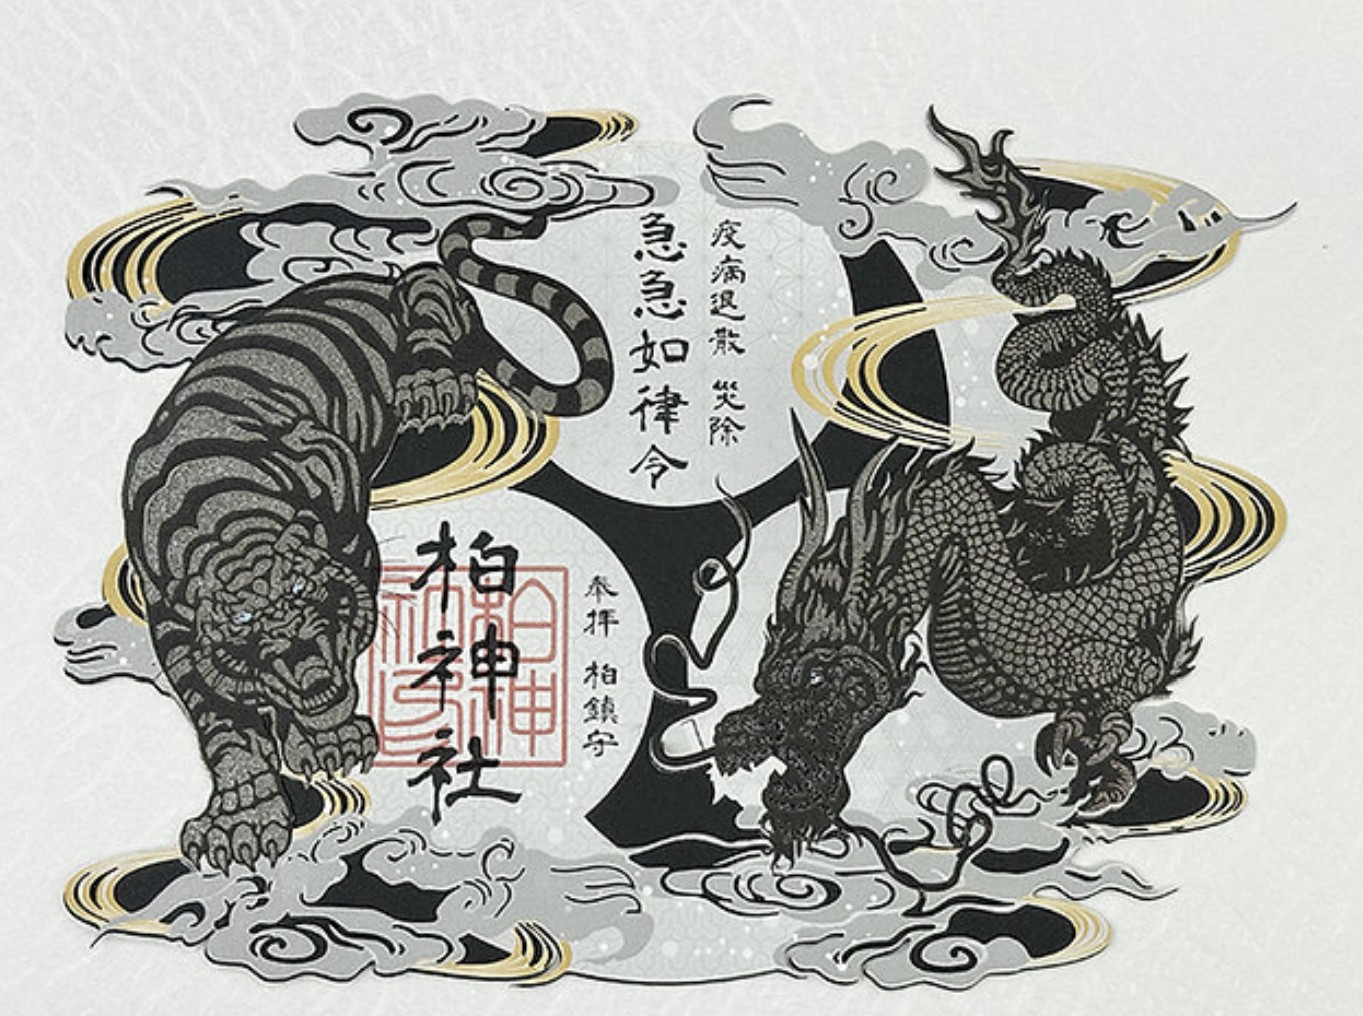 疫病退散 災除
急急如律令
奉拝 柏鎮守
柏神社
柏神社印